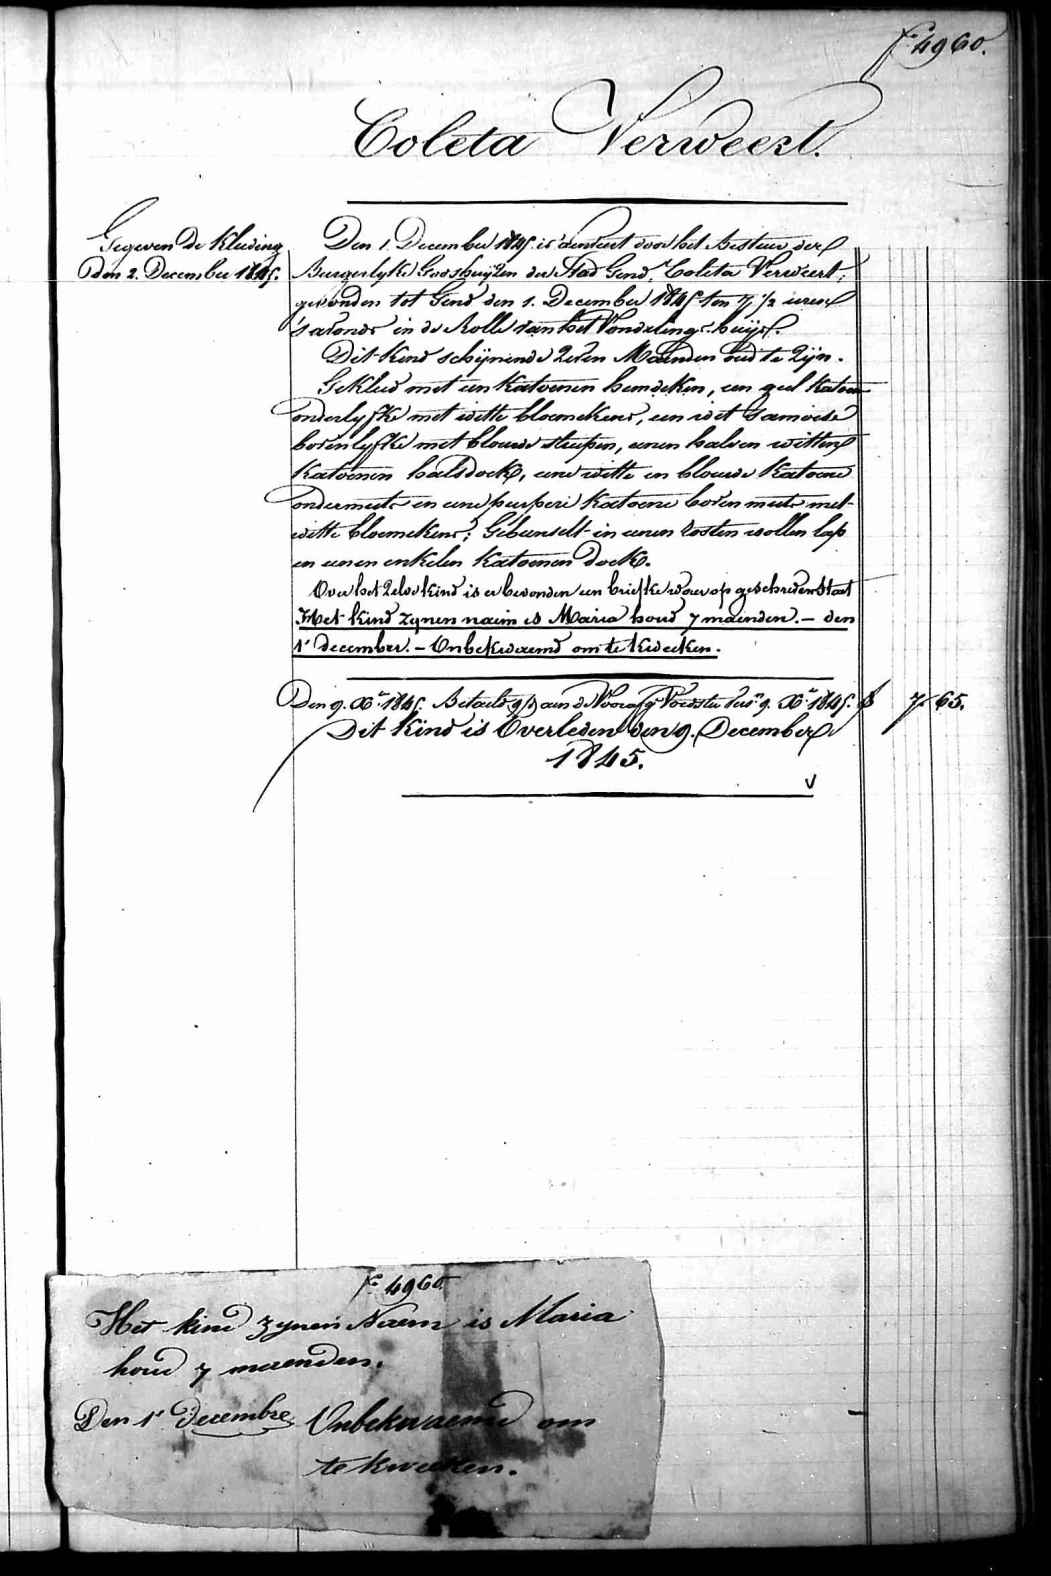 f° 4960.
Coleta Verweert.
Gegeven de Kleeding
den 2. December 1845.
Den 1. December 1845. is aenveert door het Bestuer der
Burgerlyke Godshuijzen der Stad Gend, Coleta Verweert;
gevonden tot Gend den 1. December 1845 ten 7 1/2 ueren
's avonds in de Rolle van het Vondelings-huijs.
Dit Kind schijnende Zeven Maenden oud te Zijn.
Gekleed met een Katoenen hemdeken, een geel Katoen
onderlyfke met witte bloemekens, een wit siamoise
bovenlyfke met blauwe streepen, eenen halven witten
Katoenen halsdoek, eene witte en blauwe Katoene
ondermuts en eene peerpere Katoene boven muts met
witte bloemekens; Gebunselt in eenen rosten wollen lap
en eenen enkelen Katoenen doek.
Over het Zelve kind is er bevonden een briefke waer op geschreven staet
Het kind zynen naem is Maria houd 7 maenden. – den
1r december. – Onbekwaemd om te kweeken.
Den 9. Xr 1845. Betaeld aen de Voedster 9. Xr 1845. f 7 65.
Dit Kind is Overleden den 9. December
1845.
f° 4960
Het kind zynen Naem is Maria
houd 7 maenden.
Den 1r decembre Onbekwaemd om
te kweeken.